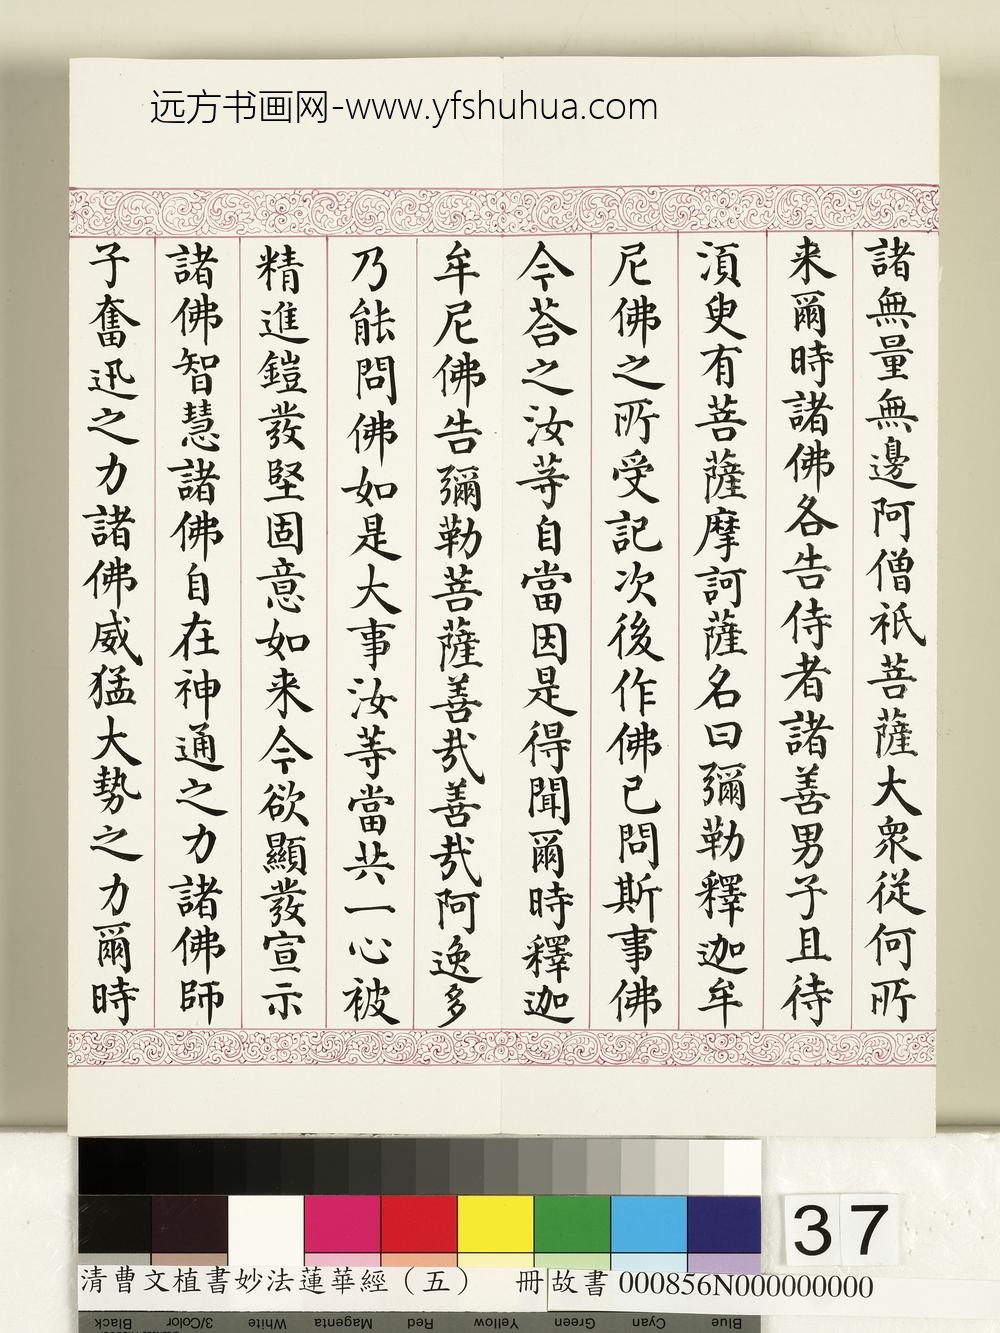 远方书画网-www.yfshuhua.com
諸無量無邊阿僧祇菩薩大衆從何所
来爾時諸佛各告侍者諸善男子且待
湏臾有菩薩摩訶薩名曰彌勒釋迦牟
尼佛之所受記次後作佛已問斯事佛
今荅之汝等自當因是得聞爾時釋迦
牟尼佛告彌勒菩薩善哉善哉阿逸多
乃能問佛如是大事汝等當共一心被
精進鎧發堅固意如来今欲顯發宣示
諸佛智慧諸佛自在神通之力諸佛師
子奮迅之力諸佛威猛大勢之力爾時
37
清曹文植書妙法蓮華經（五） 冊 故書 000856N000000000
Black 3/Color White Magenta Red Yellow Green Cyan Blue